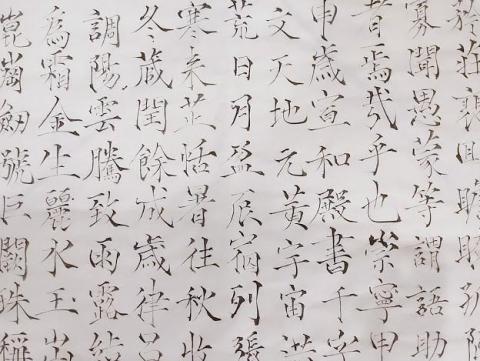 矜莊裵回瞻眺孤陋
寡聞愚蒙等謂語助
者焉哉乎也崇寧甲
申歲宣和殿書千字
文天地元黃宇宙洪
荒日月盈辰宿列張
寒来芷恬暑往秋收
冬藏閏餘成歲律呂
調陽雲騰致雨露結
爲霜金生麗水玉出
崑崗劒號巨闕珠稱